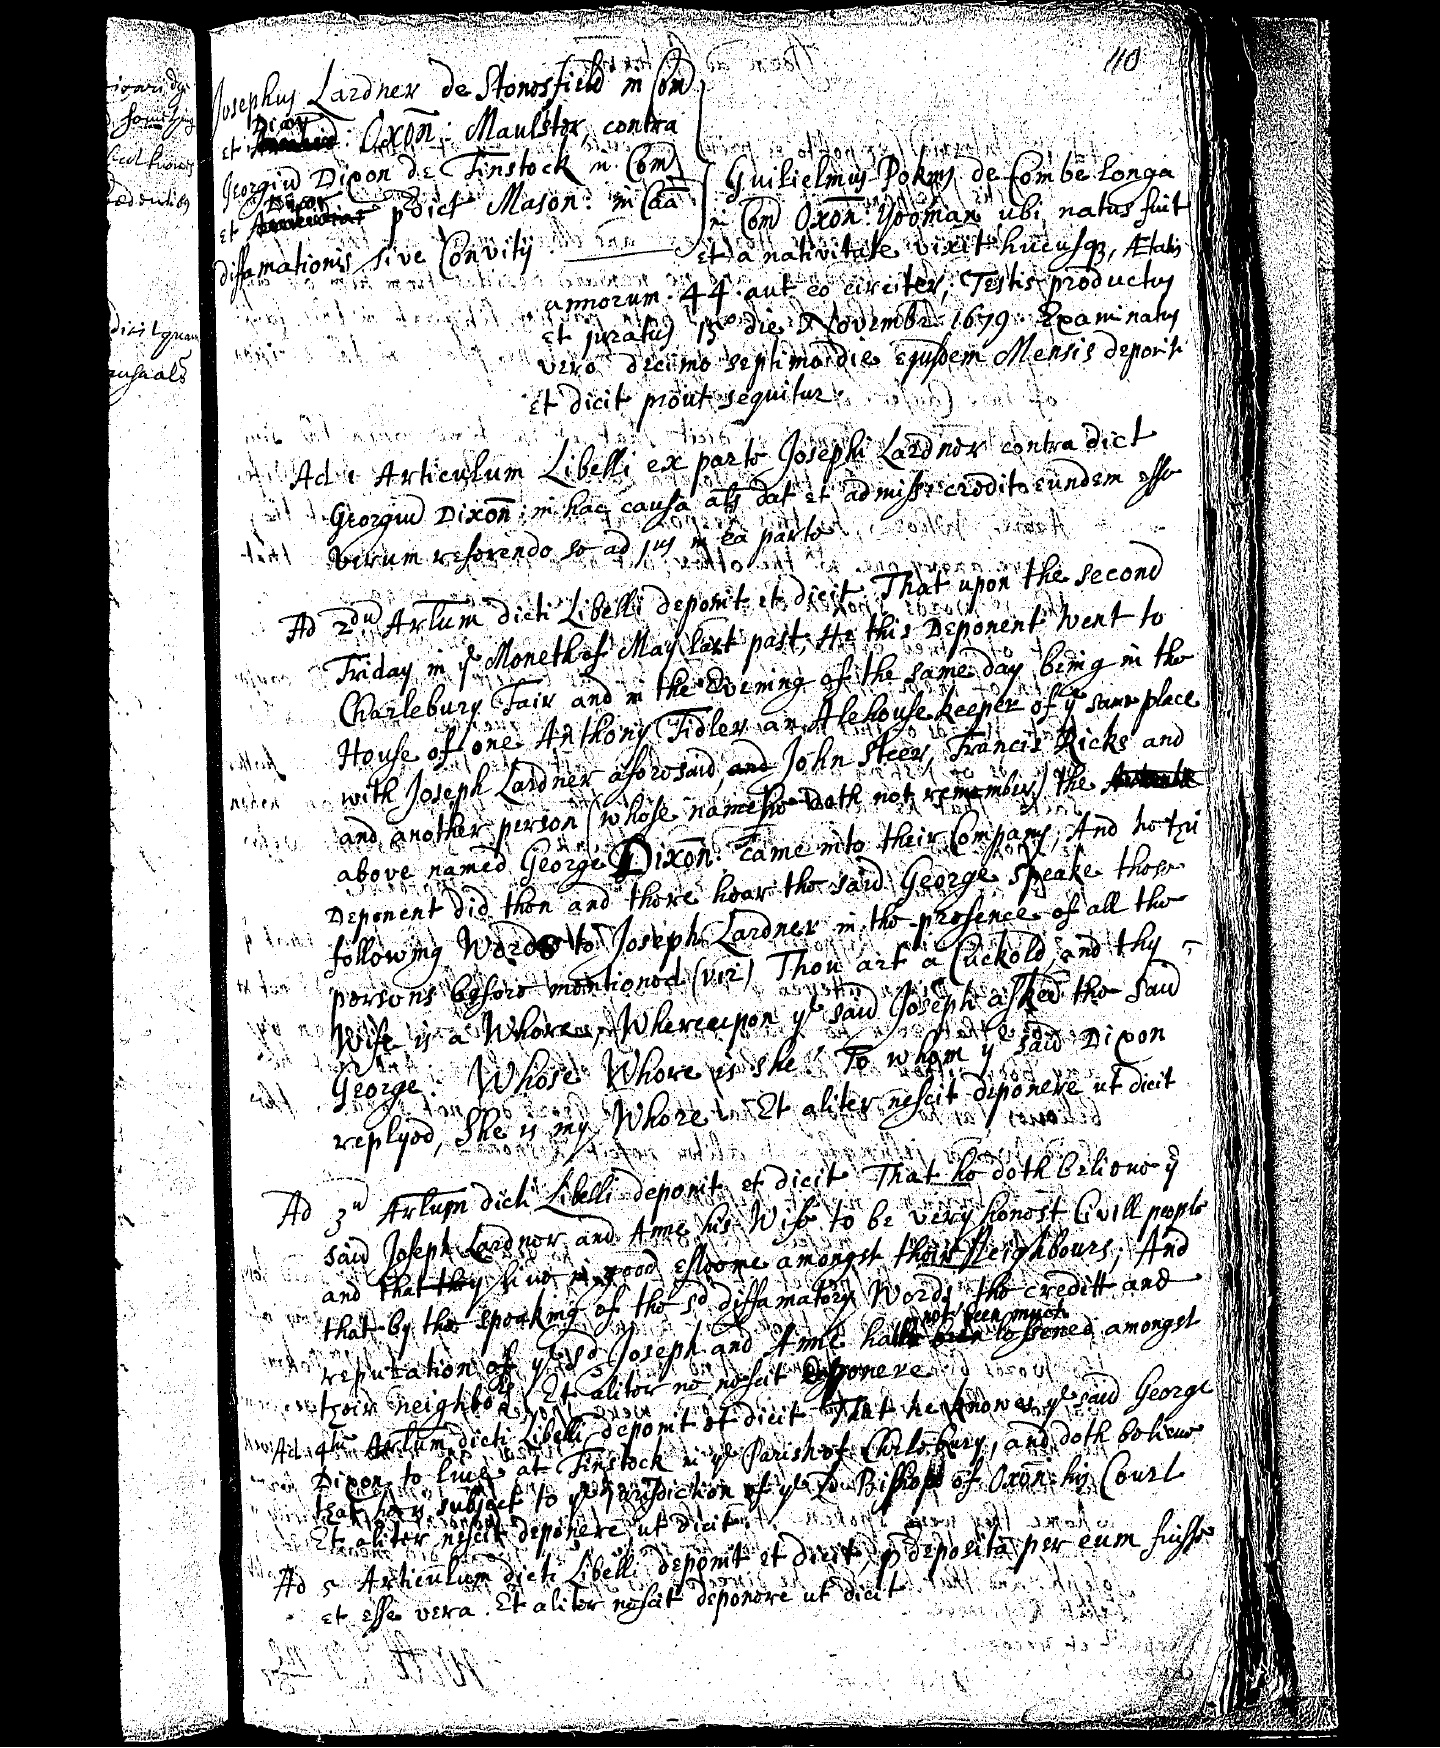 40
Josephus Lardner de Stonesfield in Com
et Dioc : Oxon : Maulster, contra
Georgiu Dixon de Finstock in Com
et Dioc pdict Mason : in Caa
diffamationis sive Convitij
Guilielmus Pokins de Combe longa
in Com Oxon Yeoman ubi natus fuit
et a nativitate vixit hucusq, Ætatis
annorum 44 aut eo circiter, Testis productus
et juratus 15o die Novembr 1679 Examinatus
vero decimo septimo die ejusdem Mensis deponit
et dicit prout sequitur
Ad 1 Articulum Libelli ex parte Josephi Lardner contra dict
Georgiu Dixon in hac causa als dat et admiss credit eundem esse
verum referendo se ad jus in ea parte
Ad 2du Arlum dicti Libelli deponit et dicit That upon the second
Friday in ye Moneth of May last past, He this Deponent went to
Charlebury Fair and in the Evening of the same day being in the
House of one Anthony Fidler an Alehouse keeper of ye same place
with Joseph Lardner aforesaid, and John Steer, Francis Ricks and
and another person (whose name he doth not remember) the
above named George Dixon came into their Company, And he this
Deponent did then and there hear the said George speake these
following Words to Joseph Lardner in the presence of all the
persons before mentioned (viz) Thou art a Cuckold, and thy
Wife is a Whore, Whereupon ye said Joseph asked the said
George : Whose Whore is she? To whom ye said Dixon
replyed, She is my Whore. Et aliter nescit deponere ut dicit
Ad 3u Arlum dicti Libelli deponit et dicit That he doth believe ye
said Joseph Lardner and Anne his Wife to be very honest Civill people
and that they live in good esteeme amongst their Neighbours, And
that by the speaking of the sd diffamatory Words the creditt and
not been much
reputation of ye sd Joseph and Anne hath been lessened amongst
their neighbors Et aliter ne nescit deponere
Ad 4tu Arlum dicti Libelli deponit et dicit That he knowes ye said George
Dixon to live at Finstock in ye Parish of Charlebury, and doth believe
that he is subject to ye Jurisdiction of ye Ld Bishop of Oxon his Court
Et aliter nescit deponere ut dicit
Ad 5 Articulum dicti Libelli deponit et dicit p deposita per eum fuisse
et esse vera. Et aliter nescit deponere ut dicit